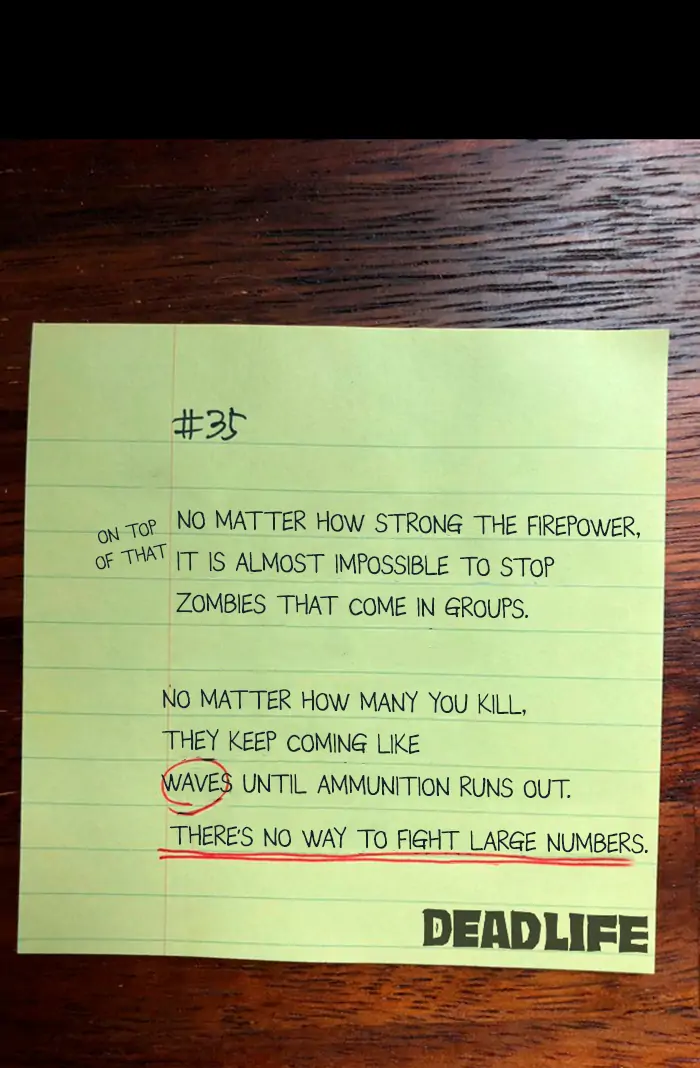 #35
ON TOP
OF THAT
NO MATTER HOW STRONG THE FIREPOWER,
IT IS ALMOST IMPOSSIBLE TO STOP
ZOMBIES THAT COME IN GROUPS.
NO MATTER HOW MANY YOU KILL,
THEY KEEP COMING LIKE
WAVES UNTIL AMMUNITION RUNS OUT.
THERE'S NO WAY TO FIGHT LARGE NUMBERS.
DEAD LIFE